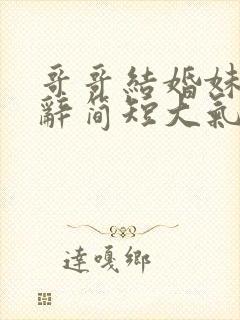 哥哥結婚妹
辭简短大氣
達嘎鄉